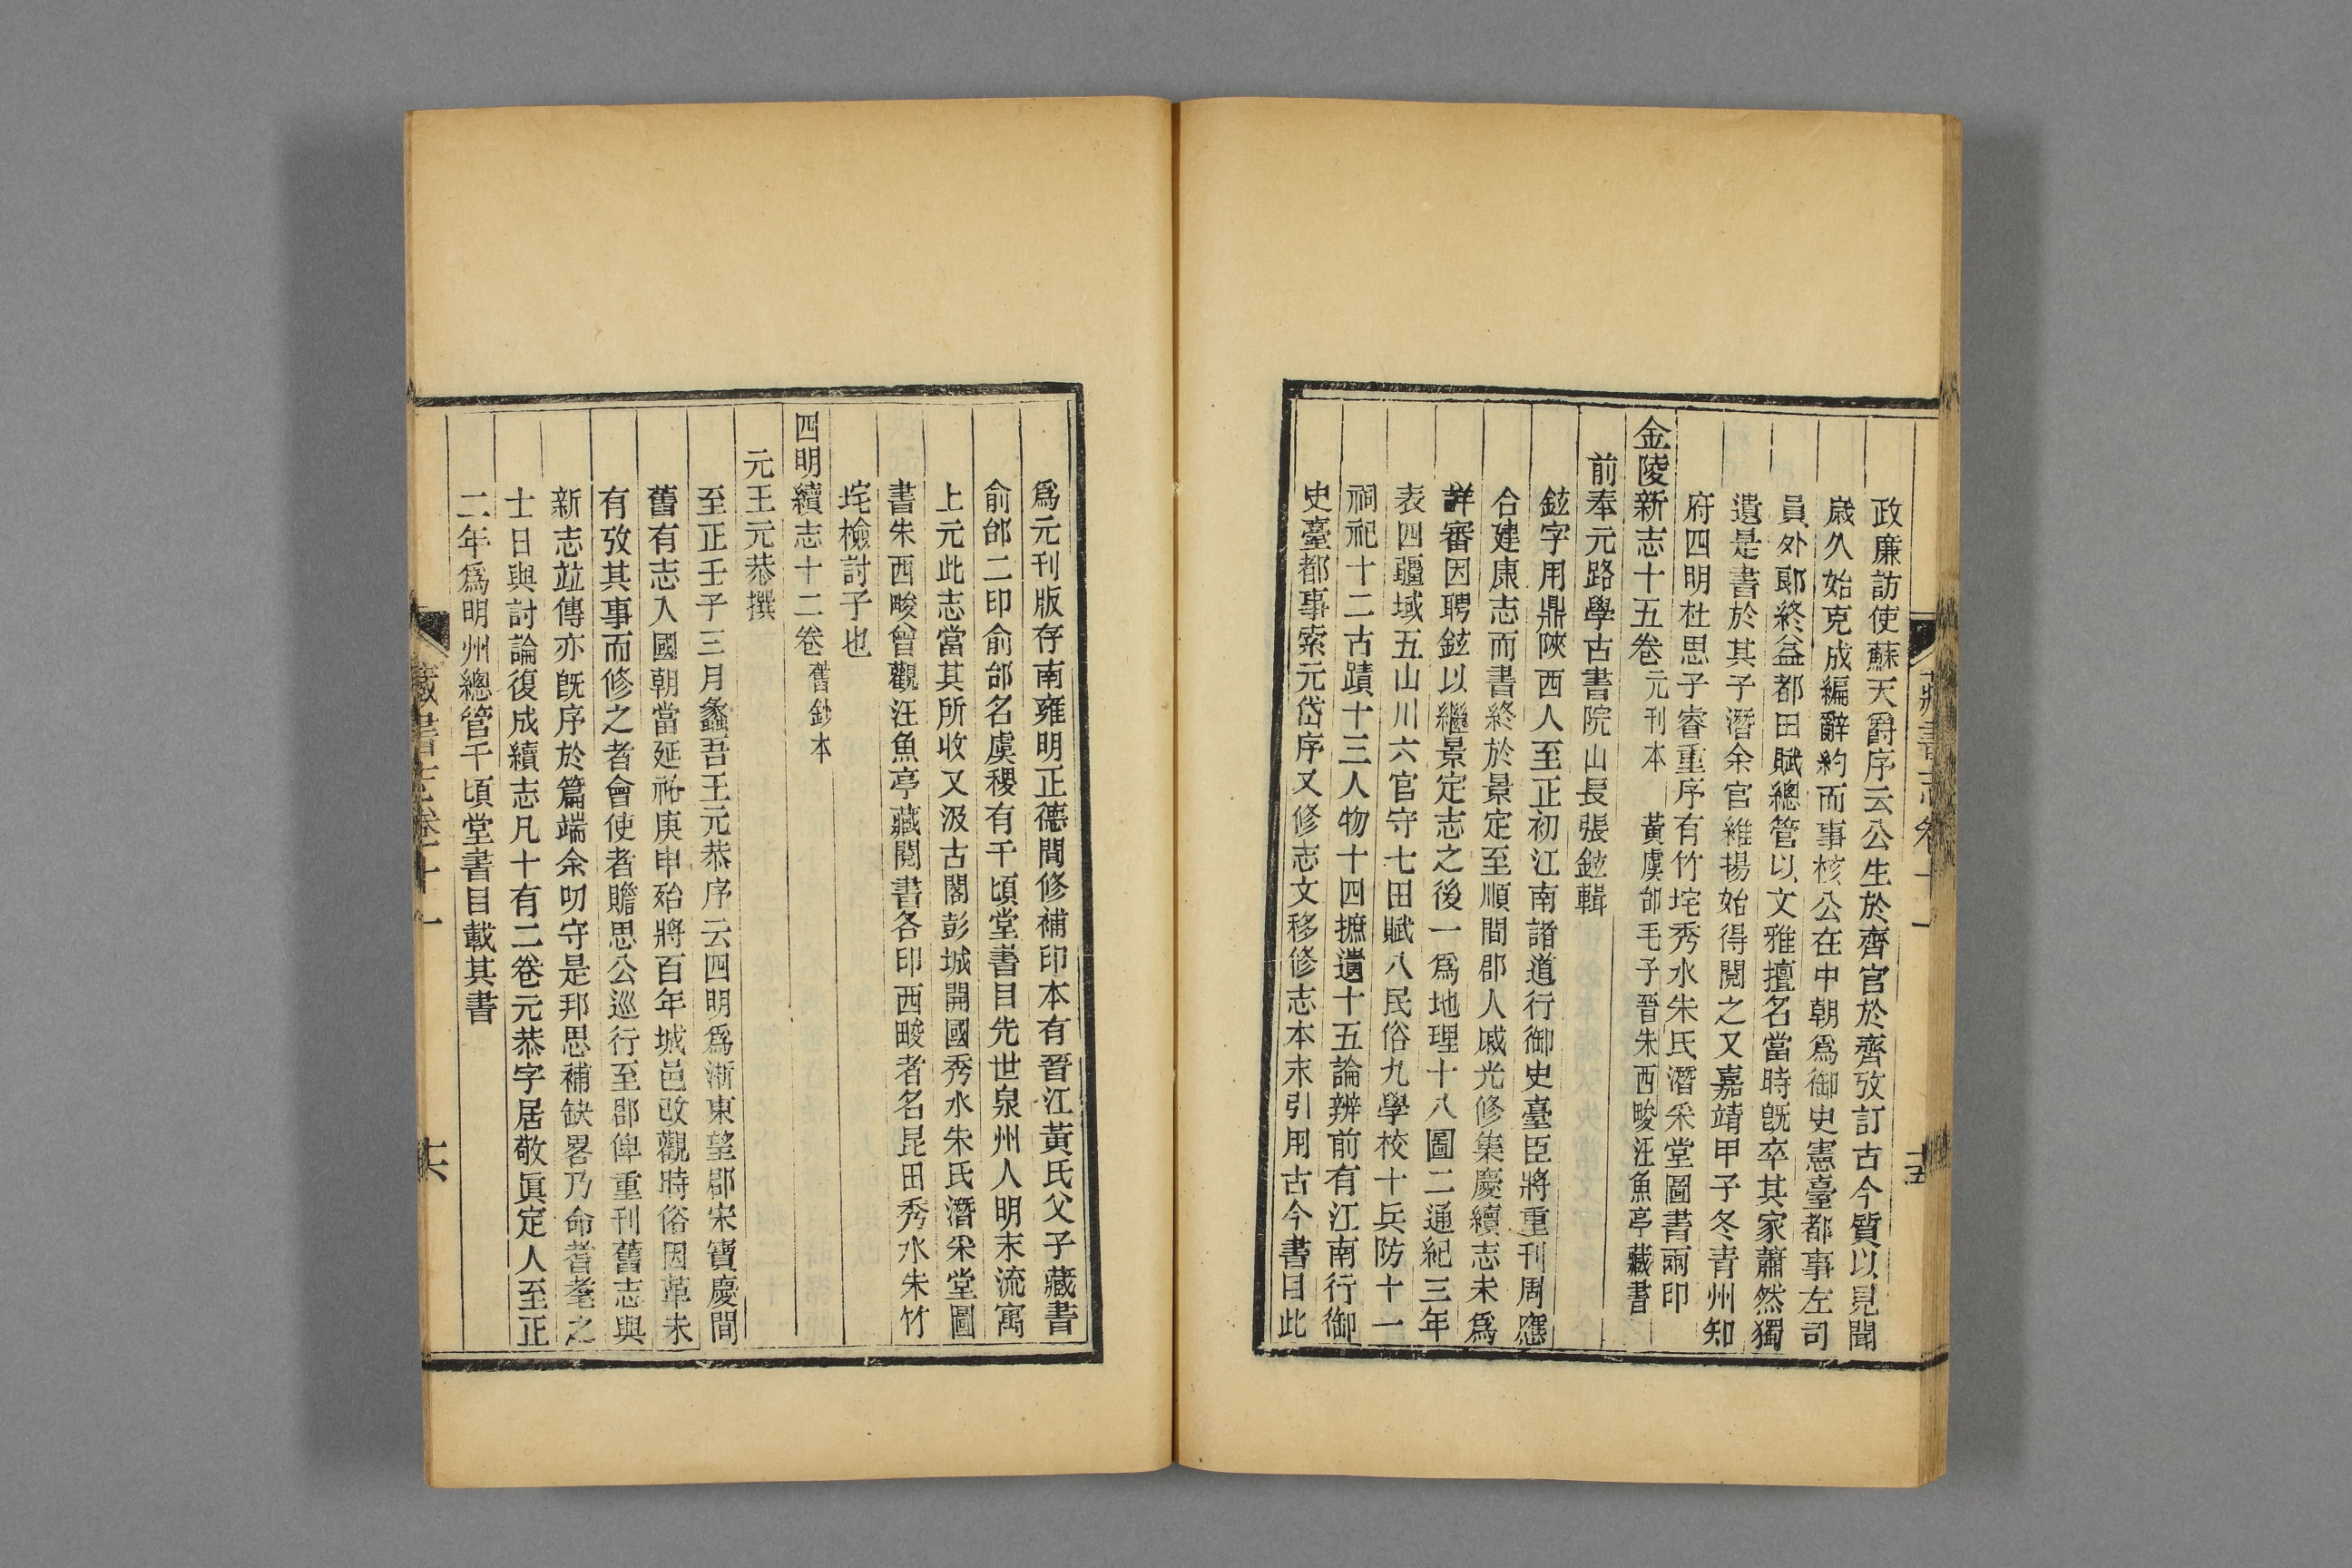 政廉訪使蘇天爵序云公生於齊官於齊攷訂古今質以見聞
歳久始克成編辭約而事核公在中朝爲御史憲臺都事左司
員外郞終益都田賦總管以文雅擅名當時旣卒其家蕭然獨
遺是書於其子潛余官維揚始得閱之又嘉靖甲子冬青州知
府四明杜思子睿重序有竹垞秀水朱氏潛采堂圖書兩印
金陵新志十五卷元刊本　黃虞邰毛子晉朱西畯汪魚亭藏書
前奉元路學古書院山長張鉉輯
鉉字用鼎陝西人至正初江南諸道行御史臺臣將重刊周應
合建康志而書終於景定至順間郡人戚光修集慶續志未爲
詳審因聘鉉以繼景定志之後一爲地理十八圖二通紀三年
表四疆域五山川六官守七田賦八民俗九學校十兵防十一
祠祀十二古蹟十三人物十四摭遺十五論辨前有江南行御
史臺都事索元岱序又修志文移修志本末引用古今書目此
爲元刊版存南雍明正德間修補印本有晉江黃氏父子藏書
俞邰二印俞邰名虞稷有千頃堂書目先世泉州人明末流寓
上元此志當其所收又汲古閣彭城開國秀水朱氏潛采堂圖
書朱西畯曾觀汪魚亭藏閱書各印西畯者名昆田秀水朱竹
垞檢討子也
四明續志十二卷舊鈔本
元王元恭撰
至正壬子三月蠡吾王元恭序云四明爲浙東望郡宋寶慶間
舊有志入國朝當延祐庚申殆將百年城邑改觀時俗因革未
有攷其事而修之者會使者贍思公巡行至郡俾重刊舊志與
新志竝傳亦旣序於篇端余叨守是邦思補缺畧乃命耆耄之
士日與討論復成續志凡十有二卷元恭字居敬眞定人至正
二年爲明州總管千頃堂書目載其書
藏書志卷十一
十六